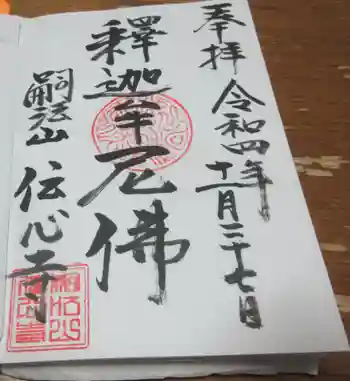 奉拝
令和四年十一月二十七日
釋迦牟尼佛
嗣法山
伝心寺